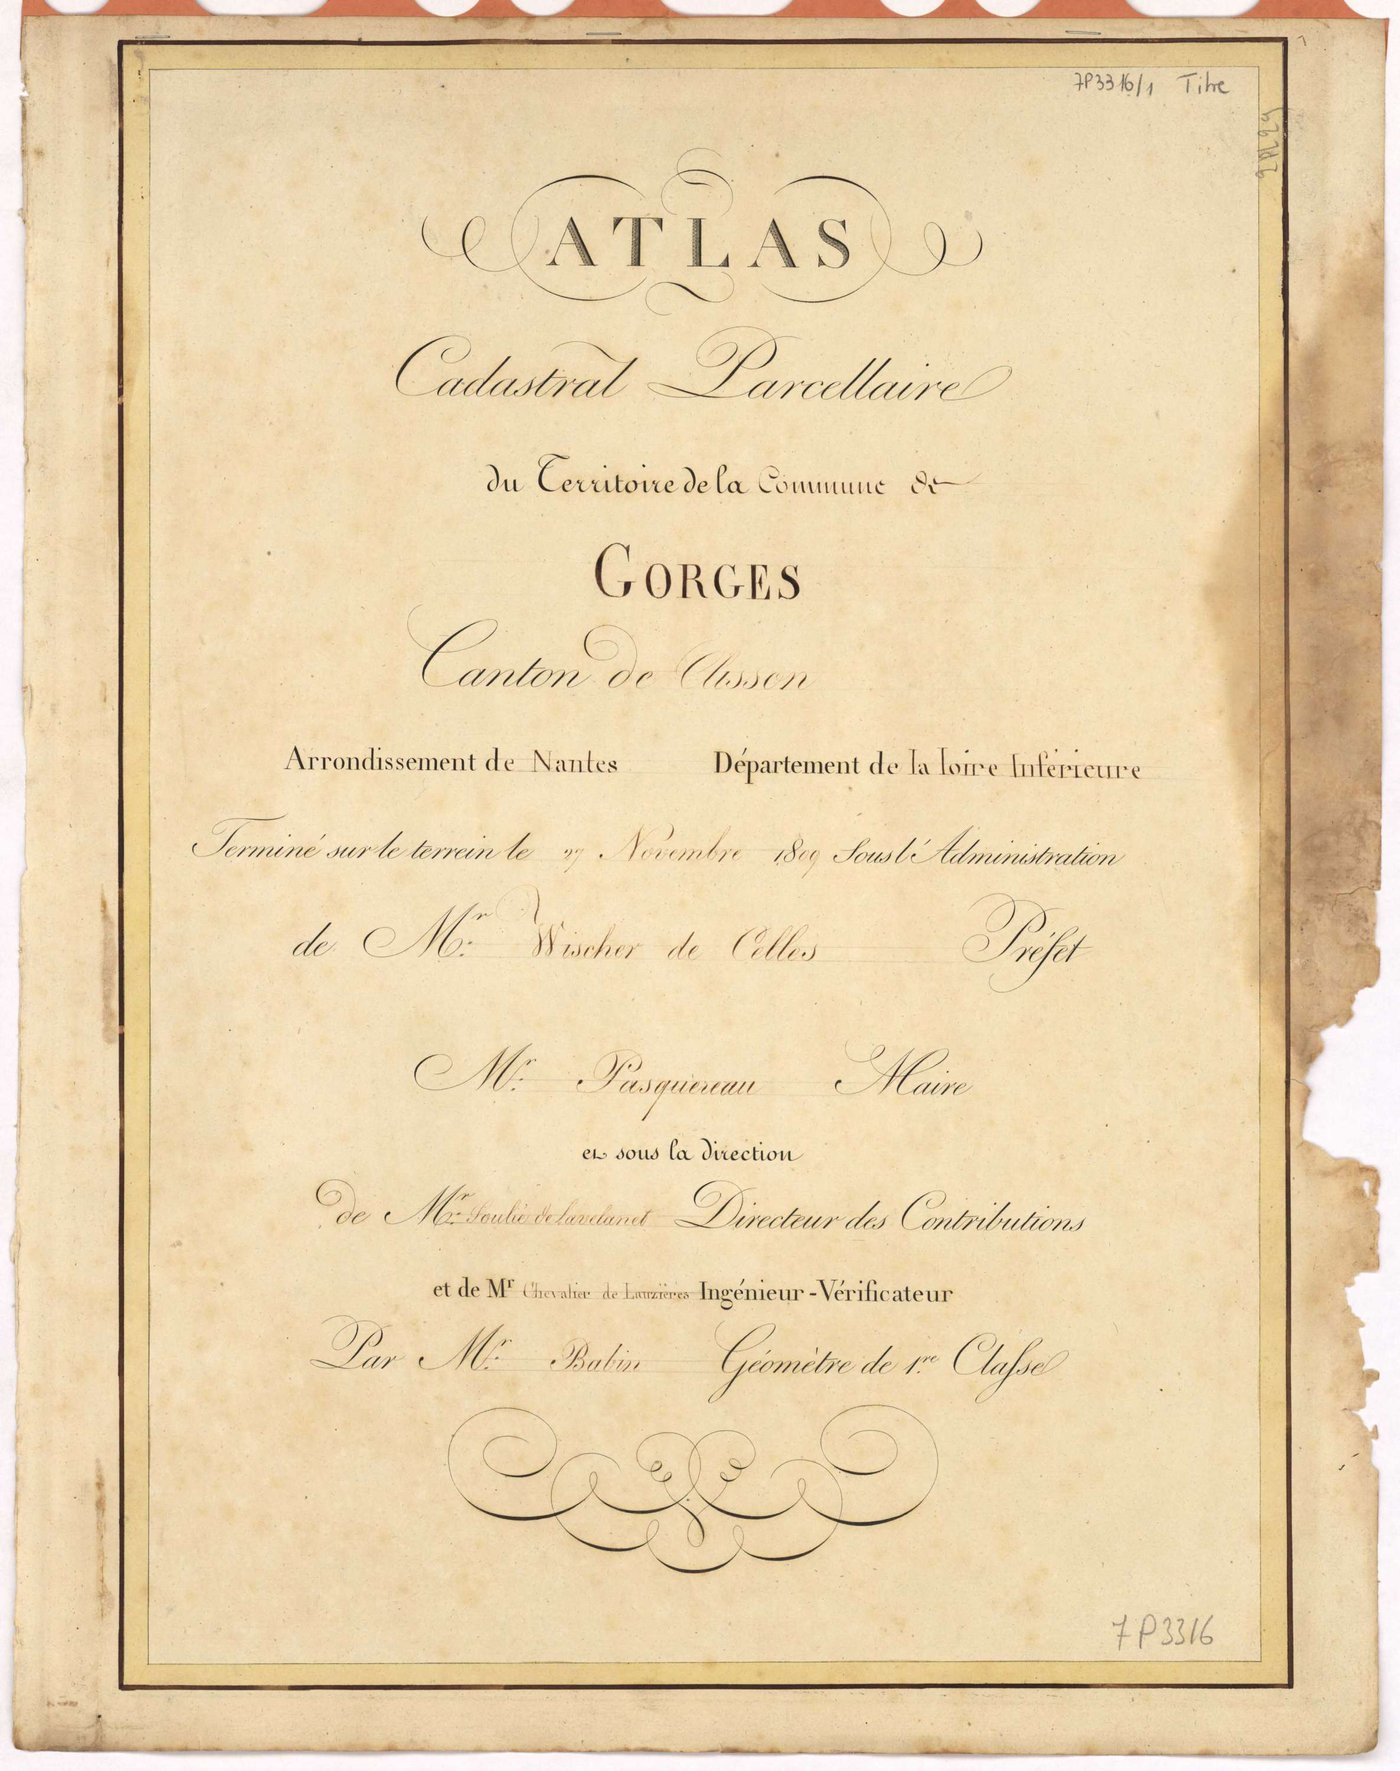 7P3316/1 Titre
ATLAS
Cadastral Parcellaire
du Territoire de la Commune de
GORGES
Canton de Clisson
Arrondissement de Nantes Département de la Loire Inférieure
Terminé sur le terrein le 27 Novembre 1809 Sous l'Administration
de Mr. Wischer de Celles Préfet
Mr. Pasquereau Maire
et sous la direction
de Mr. Soulié de lavelanet Directeur des Contributions
et de Mr Chevalier de Lauzières Ingénieur-Vérificateur
Par Mr. Babin Géomètre de 1re. Classe
7P3316